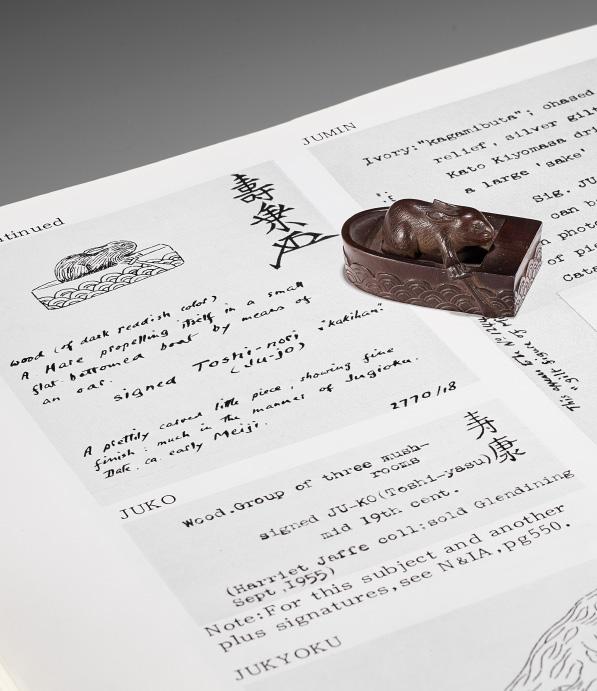 ntinued
壽
wood (of dark reddish color)
A Hare propelling itself in a small
flat bottomed boat by means of
an oar.
signed Toshi-nori "kakihan"
(Ju-jo)
A prettily carved little piece, showing fine
finish: much in the manner of Jugioku.
Date. ca. early Meiji.
2770/18
JUKO
寿康
Wood.Group of three mush-
rooms
signed JU-KO(Toshi-yasu)
mid 19th cent.
(Harriet Jaffe coll:sold Glendining
Sept,1955)
Note:For this subject and another
plus signatures,see N&IA,pg550.
JUKYOKU
JUMIN
Ivory:"kagamibuta"; chased
relief, silver gilt
Kato Kiyomasa dri
a large 'sake'
Sig. JU
can b
photo
of pie
Cata